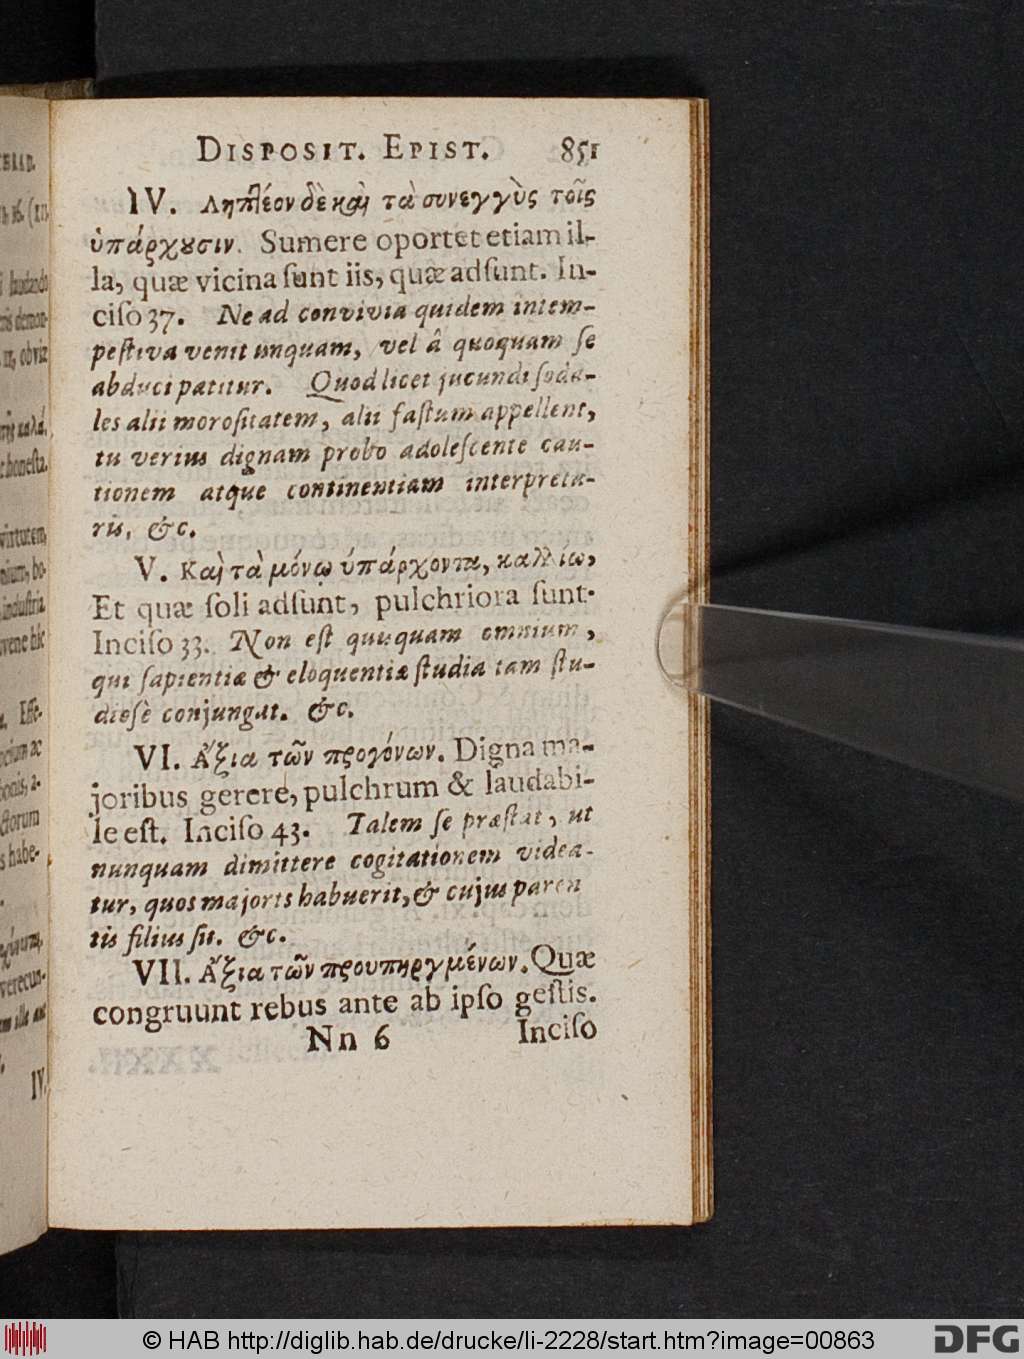 DISPOSIT. EPIST. 851
IV. Ληπτέον δὲ καὶ τὰ συνεγγὺς τοῖς
ὑπάρχȣσιν. Sumere oportet etiam il-
la, quæ vicina ſunt iis, quæ adſunt. In-
ciſo 37. Ne ad convivia quidem intem-
peſtiva venit unquam, vel â quoquam ſe
abduci patitur. Quod licet jucundi ſoda-
les alii moroſitatem, alii faſtum appellent,
tu verius dignam probo adoleſcente cau-
tionem atque continentiam interpreta-
ris, &c.
V. Καὶ τὰ μόνῳ ὑπάρχοντα, καλλίω,
Et quæ ſoli adſunt, pulchriora ſunt.
Inciſo 33. Non eſt quuquam omnium,
qui ſapientiæ & eloquentiæ ſtudia tam ſtu-
dioſè conjungat. &c.
VI. Ἄξια τῶν προγόνων. Digna ma-
joribus gerere, pulchrum & laudabi-
le eſt. Inciſo 43. Talem ſe præſtat, ut
nunquam dimittere cogitationem videa-
tur, quos majoris habuerit, & cujus paren
tis filius ſit. &c.
VII. Ἄξια τῶν προυπηργμένων. Quæ
congruunt rebus ante ab ipſo geſtis.
Nn 6 Inciſo
virtutem,
IV.
© HAB http://diglib.hab.de/drucke/li-2228/start.htm?image=00863
DFG